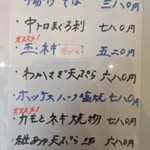 揚げそば 三八〇円
・中トロまぐろ刺 七八〇円
オススメ!
・玉ネギ 五二〇円
・わかさぎ天ぷら 六八〇円
・ホッケハーフ塩焼 七八〇円
オススメ!
・カモとネギ焼物 七八〇円
天ぷら 六八〇円